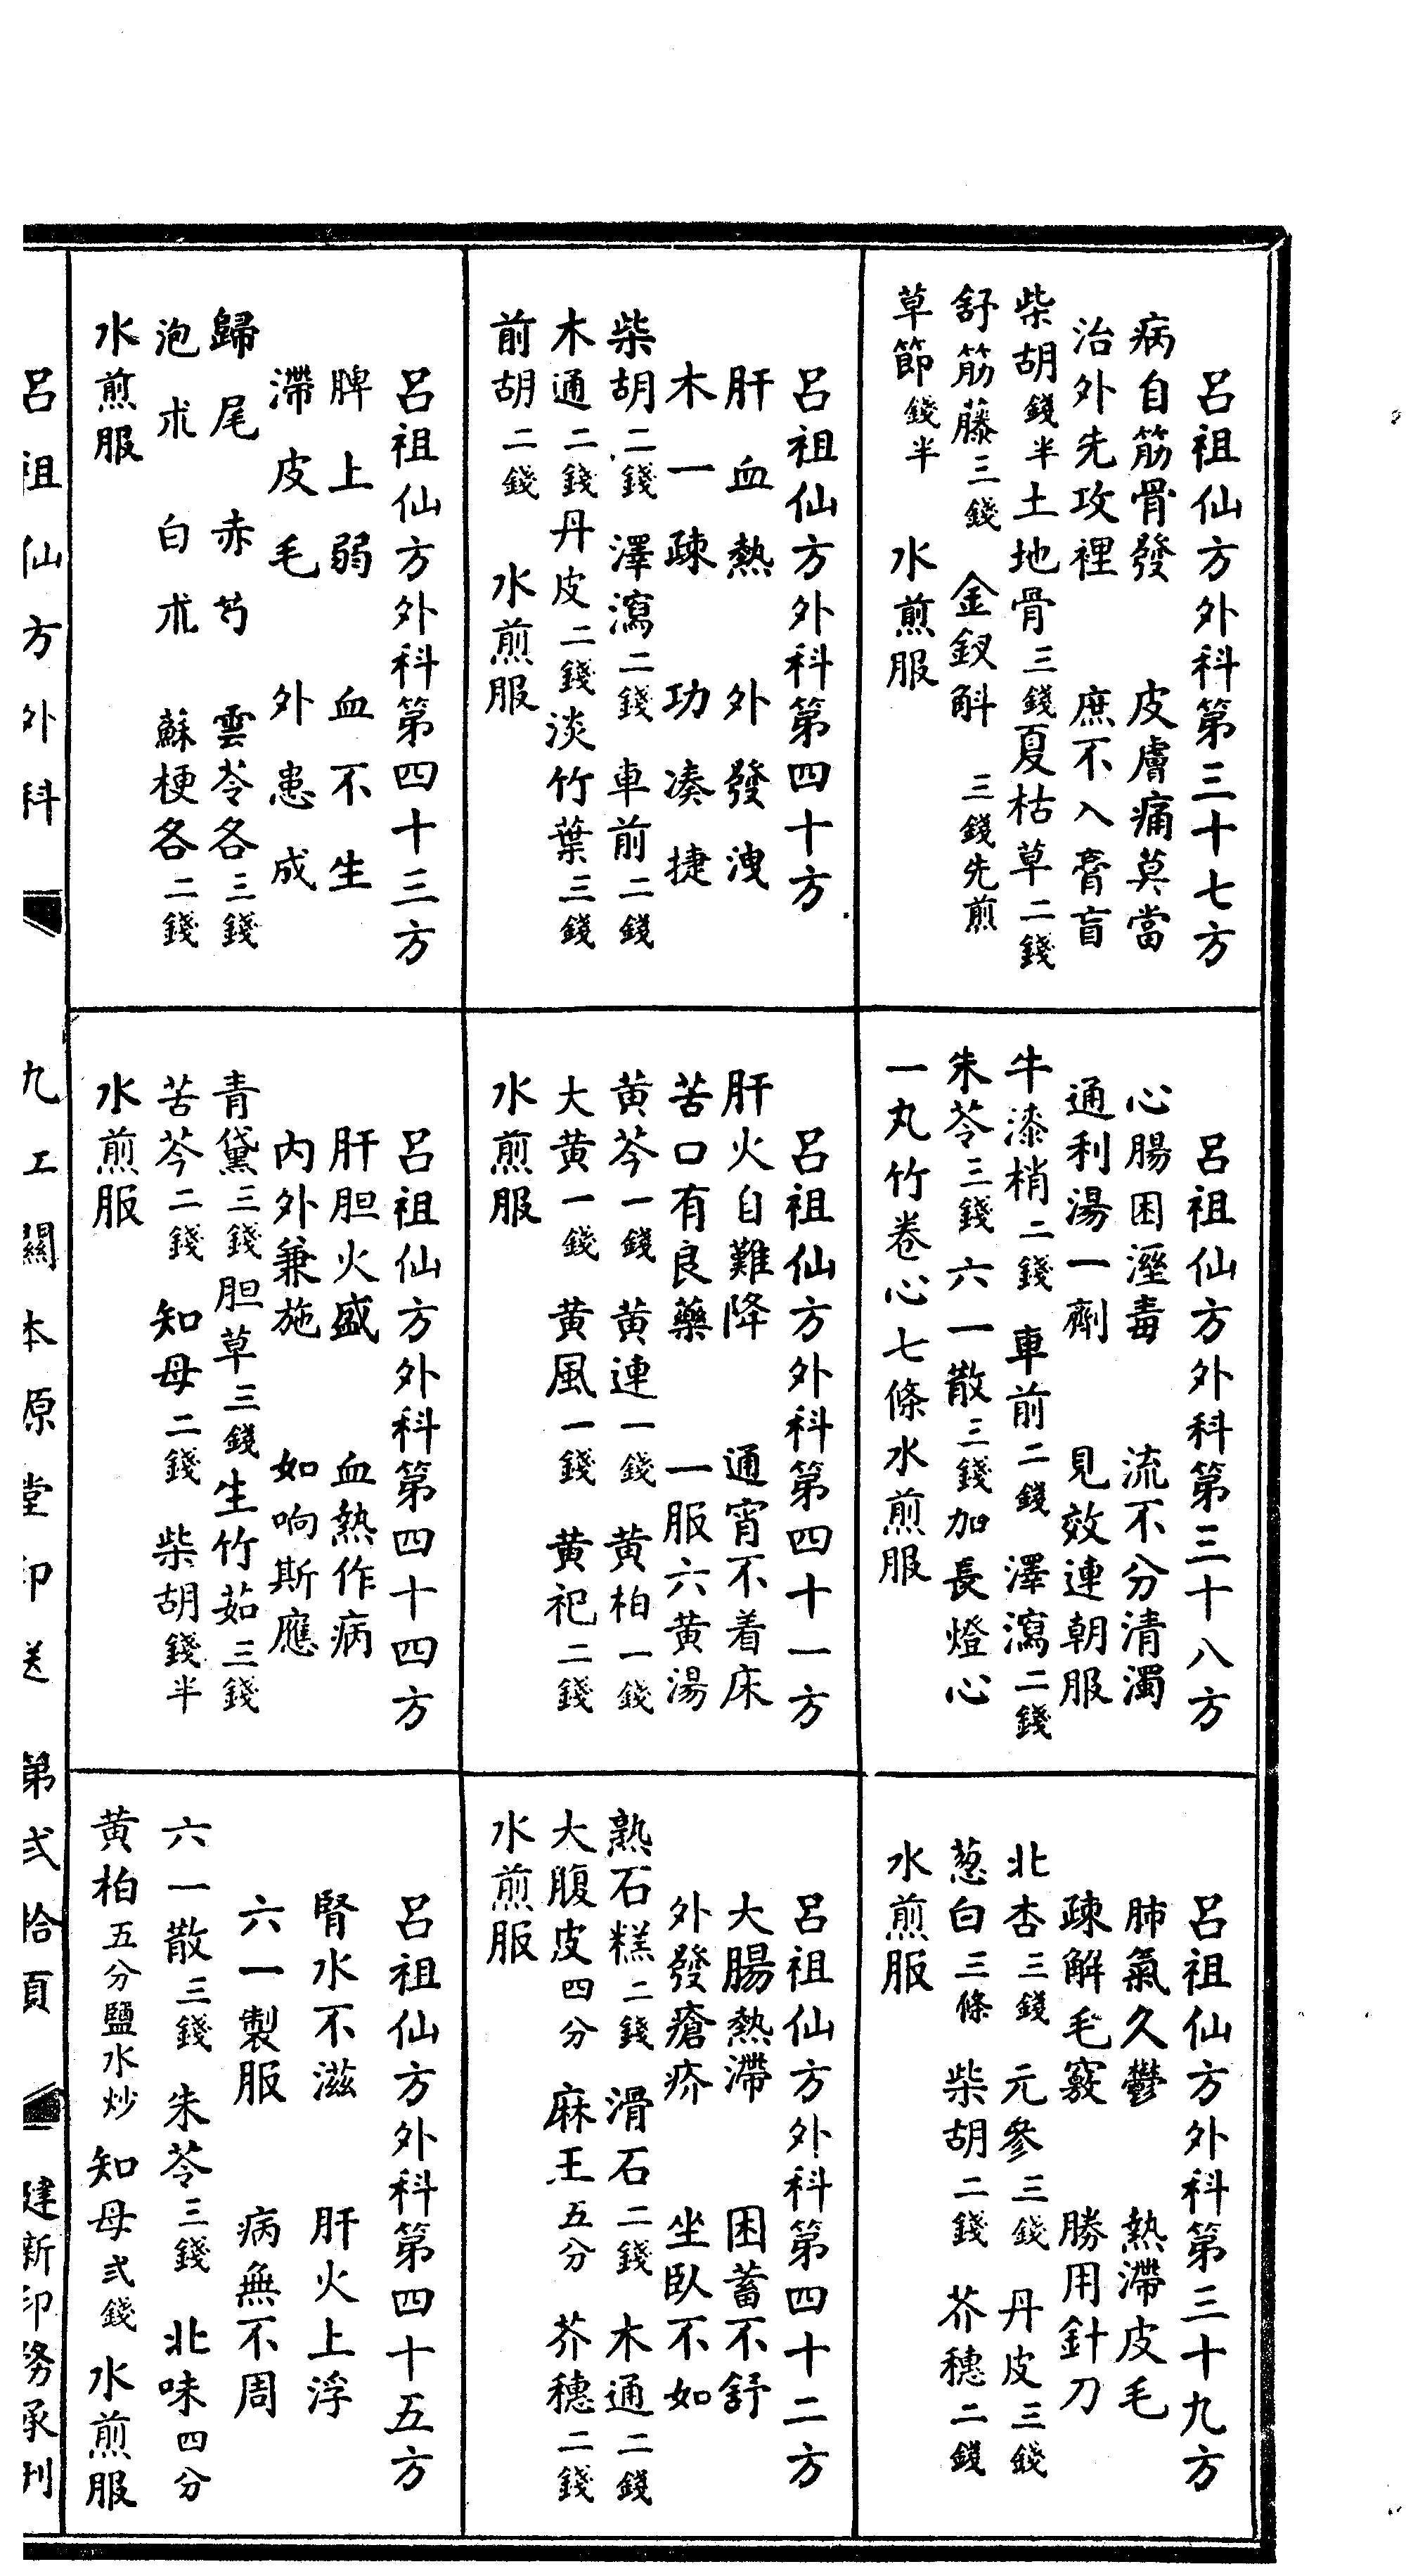 呂祖仙方外科第三十七方
病自筋骨發　皮膚痛莫當
治外先攻裡　庶不入膏盲
柴胡錢半土地骨三錢夏枯草二錢
舒筋藤三錢　金釵斛　三錢先煎
草節錢半　水煎服
呂祖仙方外科第三十八方
心腸困溼毒　流不分清濁
通利湯一劑　見效連朝服
牛漆梢二錢　車前二錢　澤瀉二錢
朱苓三錢　六一散三錢加長燈心
一丸竹卷心七條水煎服
呂祖仙方外科第三十九方
肺氣久鬱　熱滯皮毛
疎解毛竅　勝用針刀
北杏三錢　元參三錢　丹皮三錢
葱白三條　柴胡二錢　芥穗二錢
水煎服
呂祖仙方外科第四十方
肝血熱　外發洩
木一疎　功凑捷
柴胡二錢　澤瀉二錢　車前二錢
木通二錢丹皮二錢淡竹葉三錢
前胡二錢　水煎服
呂祖仙方外科第四十一方
肝火自難降　通宵不着床
苦口有良藥　一服六黄湯
黄芩一錢　黄連一錢　黄柏一錢
大黄一錢　黄風一錢　黄祀二錢
水煎服
呂祖仙方外科第四十二方
大腸熱滯　困蓄不舒
外發瘡疥　坐臥不如
熟石糕二錢　滑石二錢　木通二錢
大腹皮四分　麻王五分　芥穗二錢
水煎服
呂祖仙方外科第四十三方
脾上弱　血不生
滯皮毛　外患成
歸尾　赤芍　雲苓各三錢
泡朮　白朮　蘇梗各二錢
水煎服
呂祖仙方外科第四十四方
肝胆火盛　血熱作病
內外兼施　如响斯應
青黛三錢胆草三錢生竹茹三錢
苦芩二錢　知母二錢　柴胡錢半
水煎服
呂祖仙方外科第四十五方
腎水不滋　肝火上浮
六一製服　病無不周
六一散三錢　朱苓三錢　北味四分
黄柏五分鹽水炒　知母弍錢　水煎服
呂祖仙方外科　九工關本原堂印送　第弍拾頁　建新印務承刊